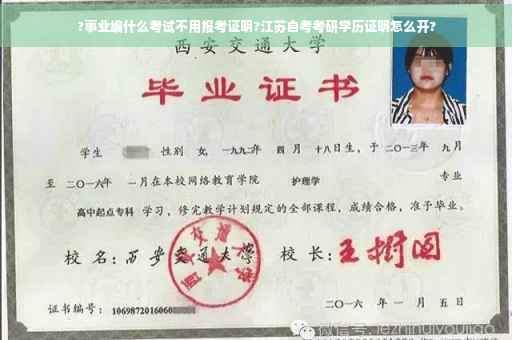 ?事业编什么考试不用报考证明?江苏自考考研学历证明怎么开?
西安交通大学
毕业证书
学生 性别 女,一九九二年 四月 十八日生,于二〇一三年 九月
至 二〇一六年 一月在本校网络教育学院 护理学 专业
高中起点专科 学习,修完教学计划规定的全部课程,成绩合格,准予毕业。
校名:西安交通大学 校长:王树国
西安交通大学
证书编号:1069872016060
二〇一六年一月五日
微信号:jiezhinuiyoujiao